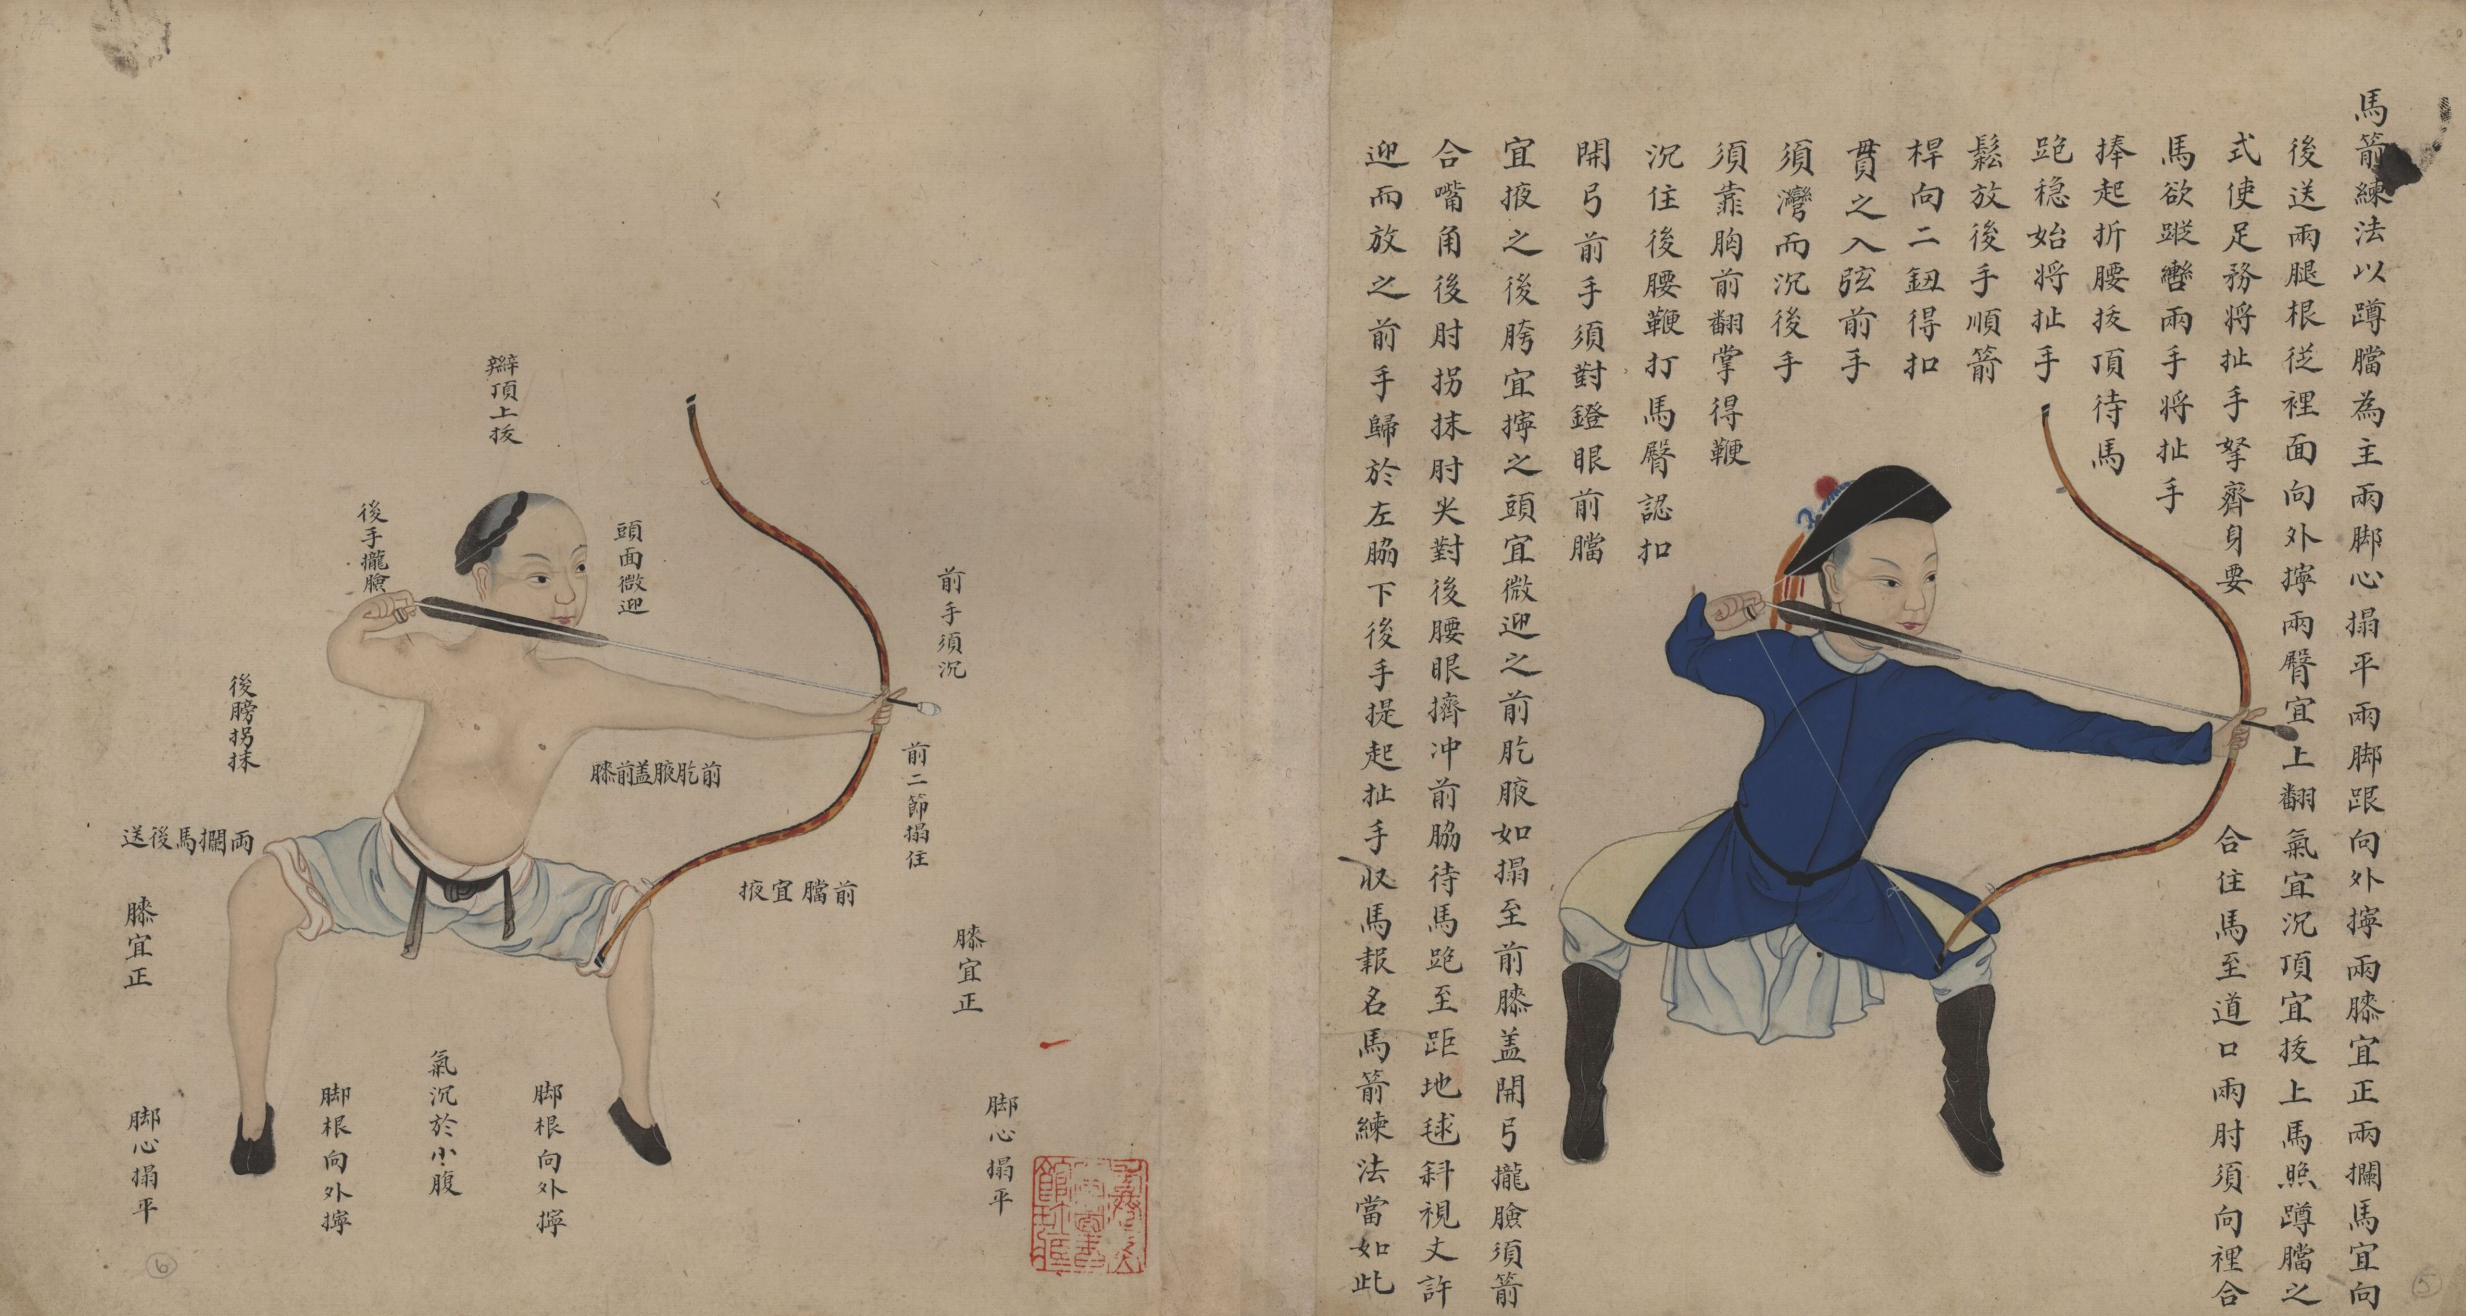 馬箭練法以蹲膛為主兩脚心搨平兩脚跟向外擰兩膝宜正兩攔馬宜向
後送兩腿根從裡面向外擰兩臀宜上翻氣宜沉頂宜拔上馬照蹲膛之
式使足務將扯手拏齊身要
合住馬至道口兩肘須向裡合
馬欲蹤轡兩手將扯手
捧起折腰拔頂待馬
跑穩始將扯手
鬆放後手順箭
桿向二鈕得扣
貫之入弦前手
須灣而沉後手
須靠胸前翻掌得鞭
沉住後腰鞭打馬臀認扣
開弓前手須對鐙眼前膛
宜掖之後胯宜擰之頭宜微迎之前肐腋如搨至前膝盖開弓攏臉須箭
合嘴角後肘拐抹肘尖對後腰眼擠冲前脇待馬跑至距地毬斜視丈許
迎而放之前手歸於左脇下後手提起扯手収馬報名馬箭練法當如此
5
脚心搨平
膝宜正
前手須沉
前二節搨住
前膛宜掖
前肐腋盖前膝
頭面微迎
辮頂上拔
後手攏臉
後膀拐抹
兩攔馬後送
膝宜正
脚根向外擰
氣沉於小腹
脚根向外擰
脚心搨平
6